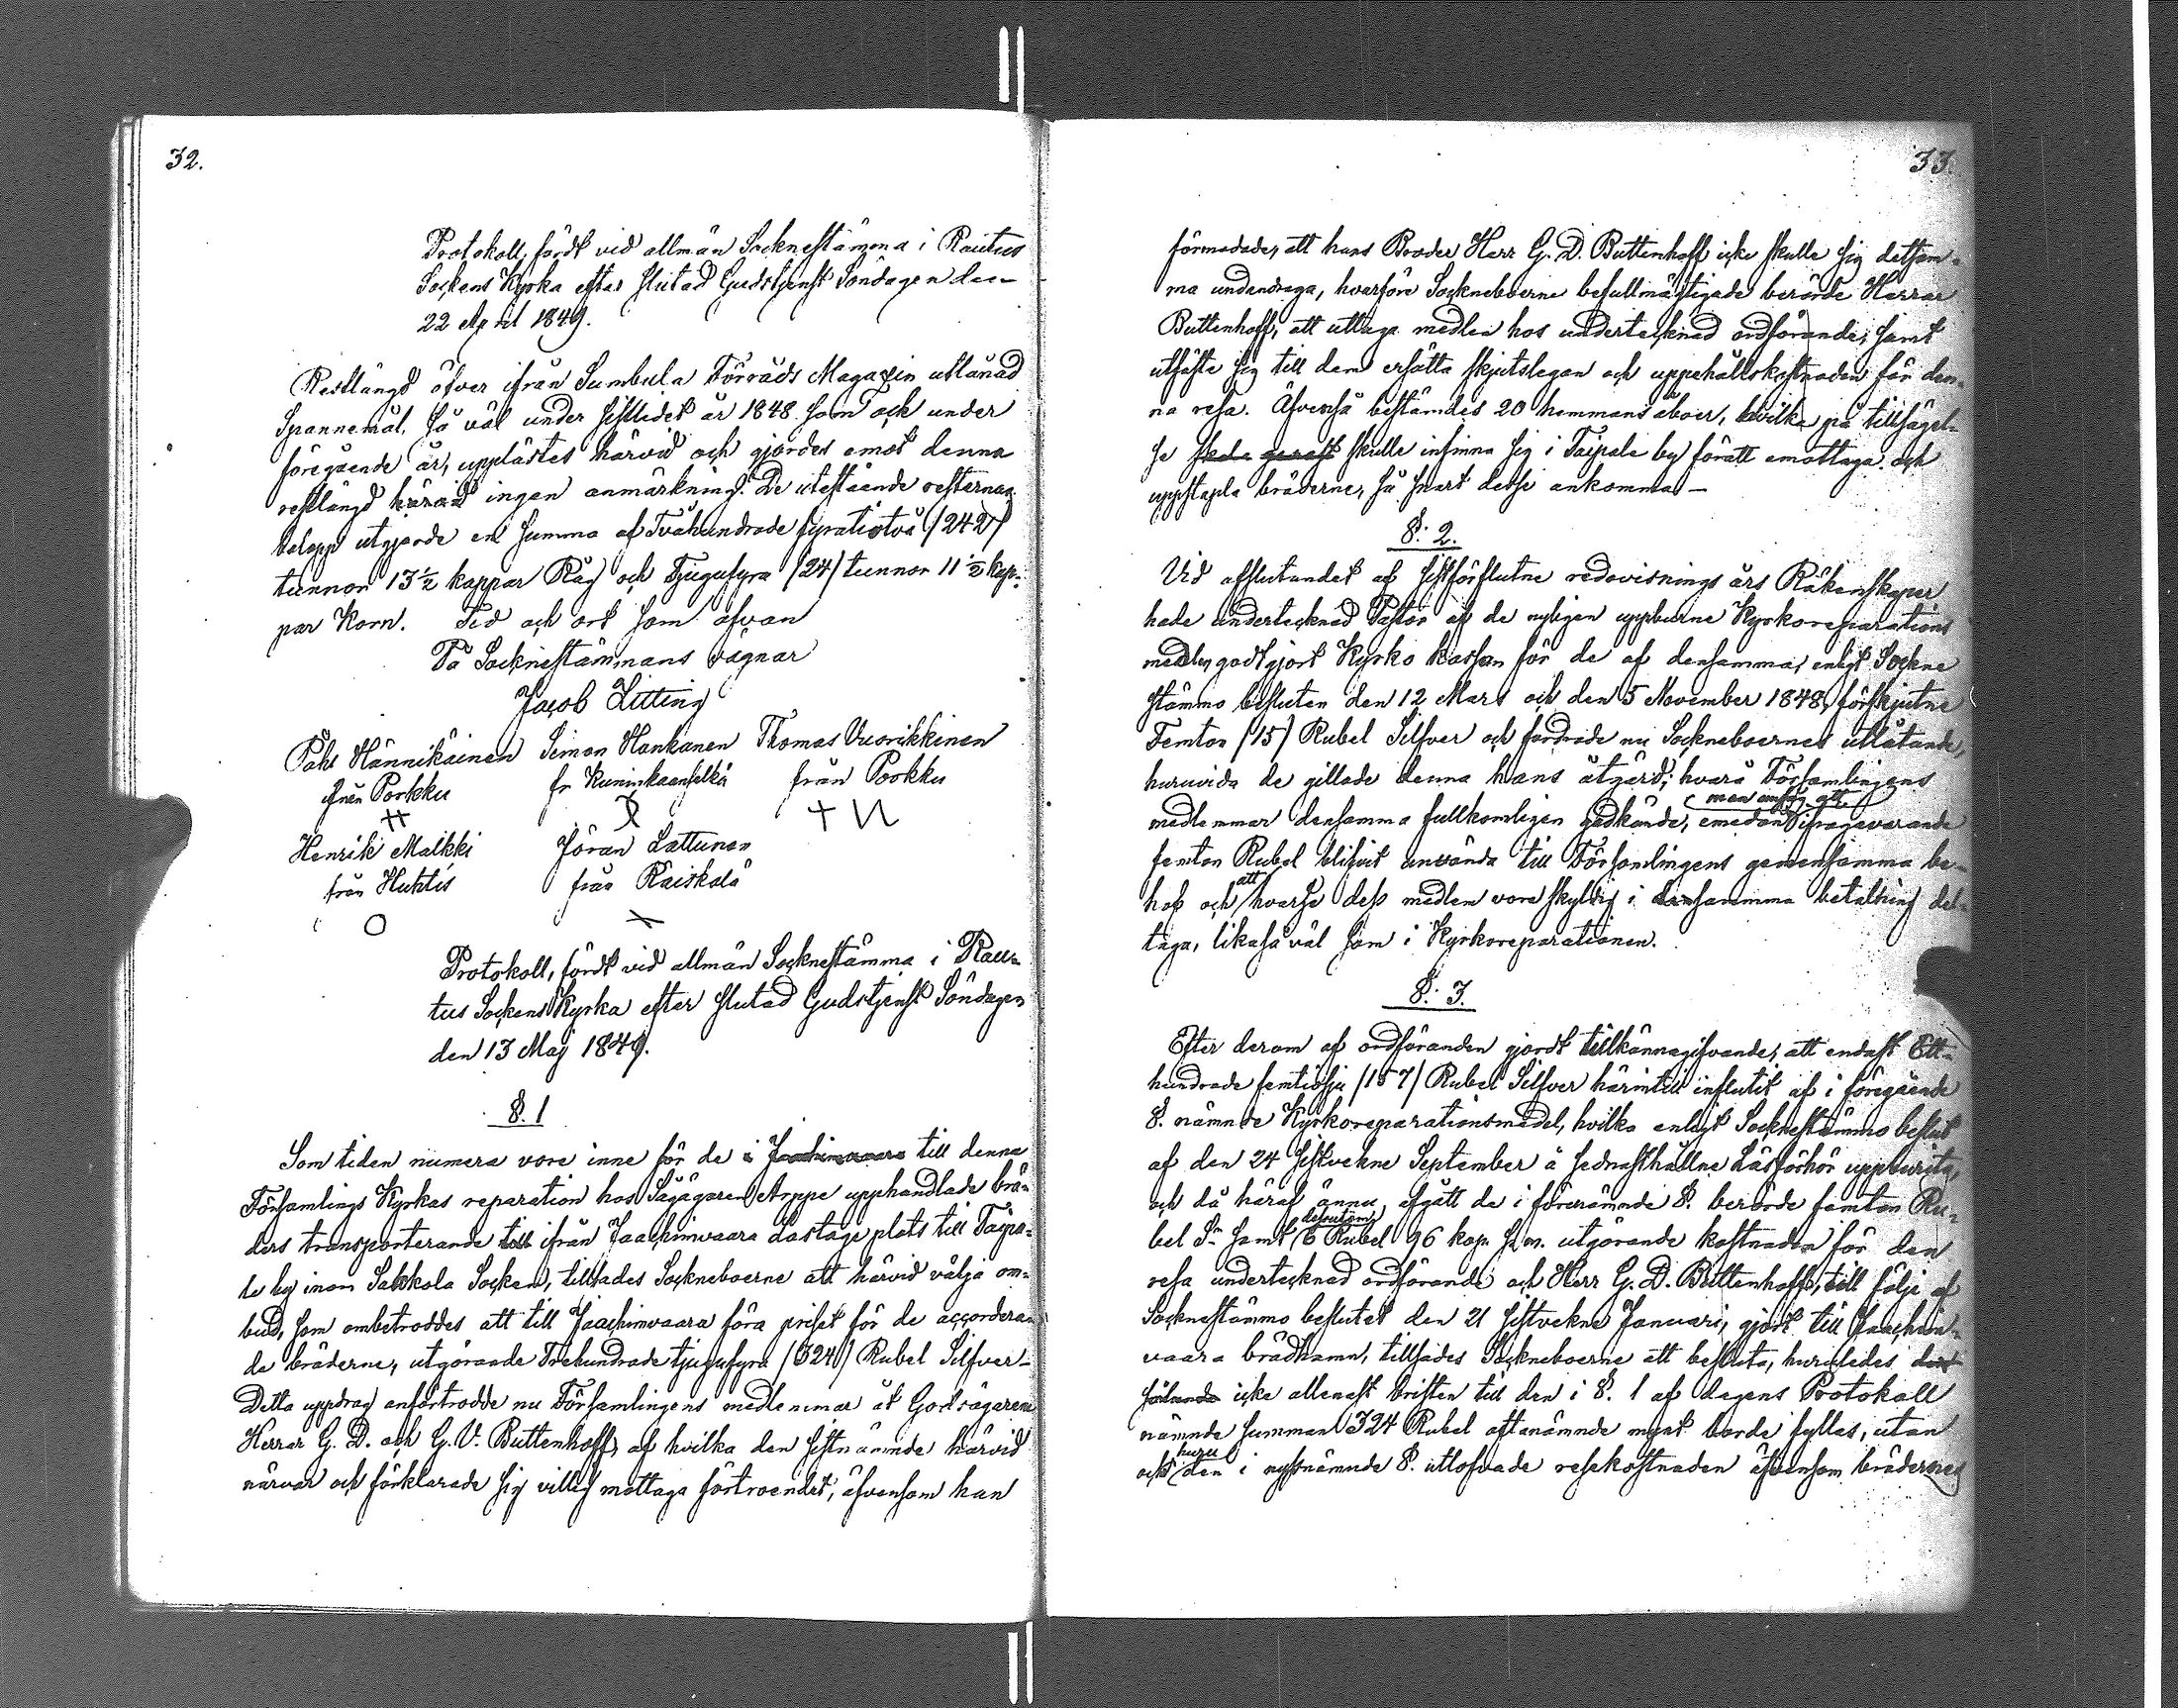 32.
Protokoll, fördt vid allmän Socknestämma i Rautus
Sockens Kyrka efter slutad Gudstjenst Söndagen den
22 April 1849.
Restlängd öfver ifrån Sumbula Förråds Magazin utlånad
Spannemål, så väl under sistledet år 1848 som ock under
föregående år, upplästes härvid och gjordes emot denna
restlängd härvid ingen anmärkning. De utestående resternas
belopp utgjorde en summa af Tvåhundrade fyratiotvå /242/
tunnor 13 1/2 kappar Råg och Tjugufyra /24/ tunnor 11 1/2 kap-
par Korn. Tid och ort som ofvan
På Socknestämmans vägnar
Jacob Litting
Påhl Hännikäinen Simon Hankanen Thomas Vuorikkinen
från Porkku fr Kuninkaanselkä från Porkku
Henrik Malkki Jöran Lattunen
från Huhtis från Räiskälä
Protokoll, fördt vid allmän Socknestämma i Rau-
tus Sockens Kyrka efter slutad Gudstjenst Söndagen
den 13 Maj 1849.
§. 1
Som tiden numera vore inne för de i Joachimvaara till denna
Församlings Kyrkas reparation hos Sågägaren Arppe upphandlade brä-
ders transporterande till ifrån Jaachimvaara lastage plats till Taipa-
le by inom Sakkola Socken, tillsades Sockneboerne att härvid välja om-
bud, som ombetroddes att till Jaachimvaara föra priset för de accordera-
de bräderne, utgörande Trehundrade tjugufyra /324/ Rubel Silfver-
Detta uppdrag anförtrodde nu Församlingens medlemmar åt Godsägaren
Herrar G. D. och G. V. Buttenhoff, af hvilka den sistnämnde härvid
närvar och förklarade sig villig mottaga förtroendet, äfvensom han
33.
förmodade, att hans Broder Herr G. D. Buttenhoff icke skulle sig detsam-
ma undandraga, hvarföre Sockneboerne befullmägtigade berörde Herrar
Buttenhoff, att uttaga medlen hos undertecknad ordförande, samt
utfäste sig till dem ersätta skjutslegan och uppehållskostnaden för den-
na resa. Äfvenså bestämdes 20 hemmans åboer, hvilka på tillsägel-
se skulle infinna sig i Taipale by förätt emottaga och
uppstapla bräderne, så snart desse ankomma -
§. 2.
Vid afslutandet af sistförflutne redovisnings års Räkenskaper
hade undertecknad Pastor af de nyligen uppburne Kyrkoreparations
medlen godtgjort Kyrko kassan för de af densamma, enligt Sockne
stämmo besluten den 12 Mars och den 5 November 1848, förskjutne
Femton /15/ Rubel Silfver och fordrade nu Sockneboernes utlåtande,
huruvida de gillade denna hans åtgärd; hvarå Församlingens
medlemmar densamma fullkomligen godkände, emedan ifrågavarande
femton Rubel blifvit använda till Församlingens gemensamma be-
hof och att hvarje dess medlem vore skyldig i densamma betalning del-
taga, likaså väl som i Kyrkoreparationen.
§. 3.
Efter derom af ordföranden gjordt tillkännagifvande, att endast Ett-
hundrade femtiosju /157/ Rubel Silfver härintill influtit af i föregående
§. nämnde Kyrkoreparationsmedel, hvilka enligt Socknestämmo beslut
af den 24 sistvekne September å sednasthållne Läsförhör uppburits,
och då häraf ännu afgått de i förenämnde §. berörde femton Ru-
bel Sr samt dessutom 6 Rubel 96 kop. s. m. utgörande kostnaden för den
resa undertecknad ordförande och Herr G. D. Buttenhoff, till följe af
Socknestämmo beslutet den 21 sistvekne Januari, gjort till Jaachim-
vaara brädhamn, tillsades Sockneboerne att besluta, huruledes
icke allenast bristen till den i §. 1 af dagens Protokoll
nämnde summan 324 Rubel oftanämnde mynt borde fyllas, utan
ock huru den i nystnämnde §. utlofvade resekostnaden äfvensom brädernes